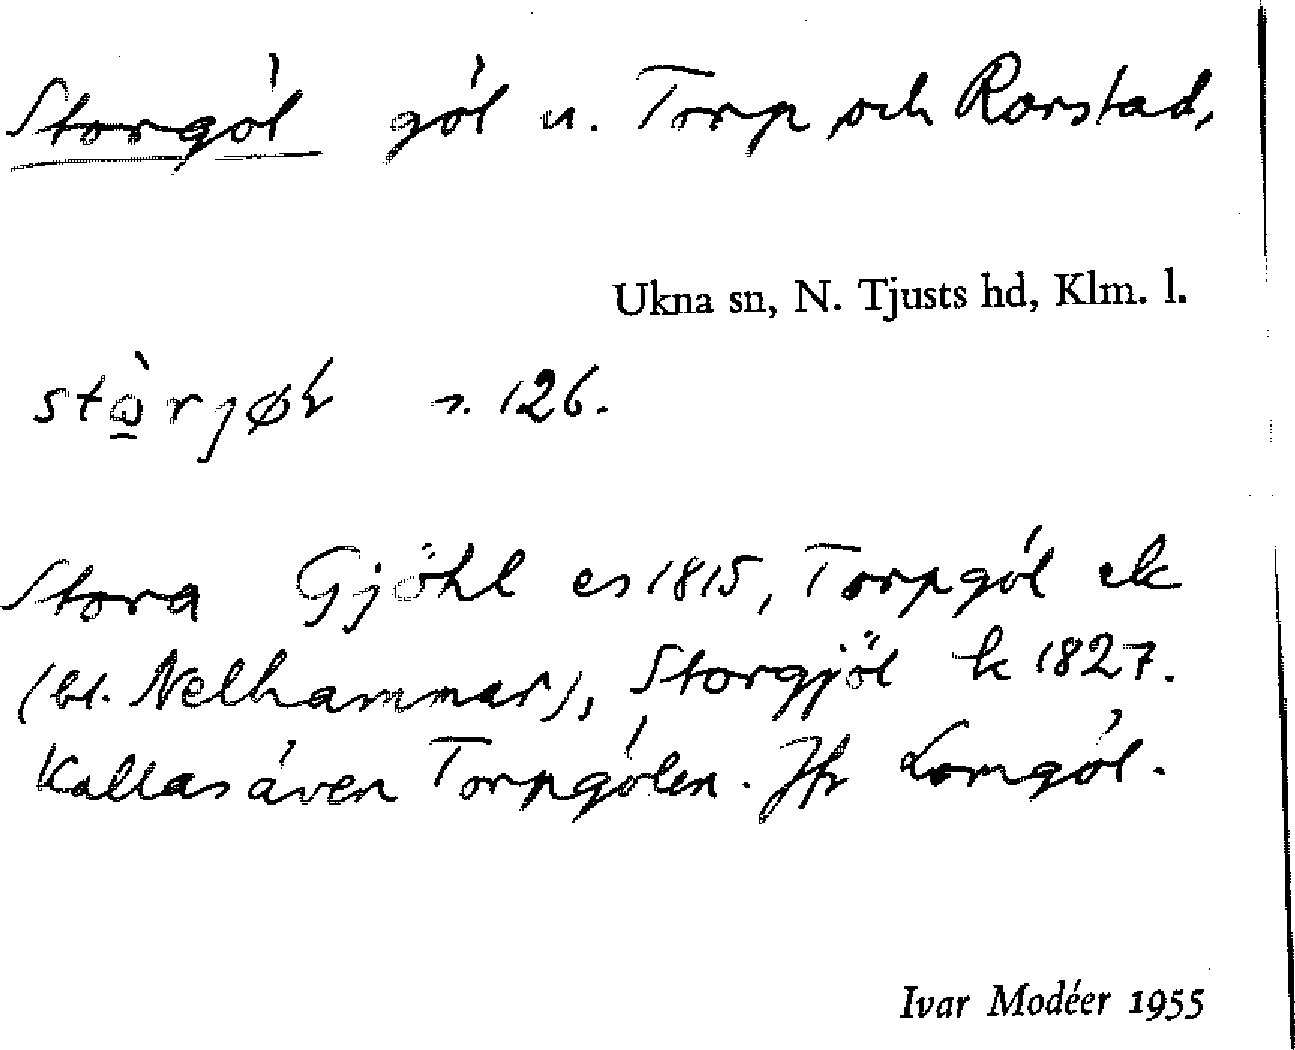 Storgöl göl u. Torp och Rorstad,
Ukna sn, N. Tjusts hd, Klm. l.
s. 126.
Stora Gjöhl es 1815, Torpgöl ek
(bl. Nelhammar), Storgjöl k 1827.
Kallas även Torpgölen. Jfr Lomgöl.
Ivar Modéer 1955